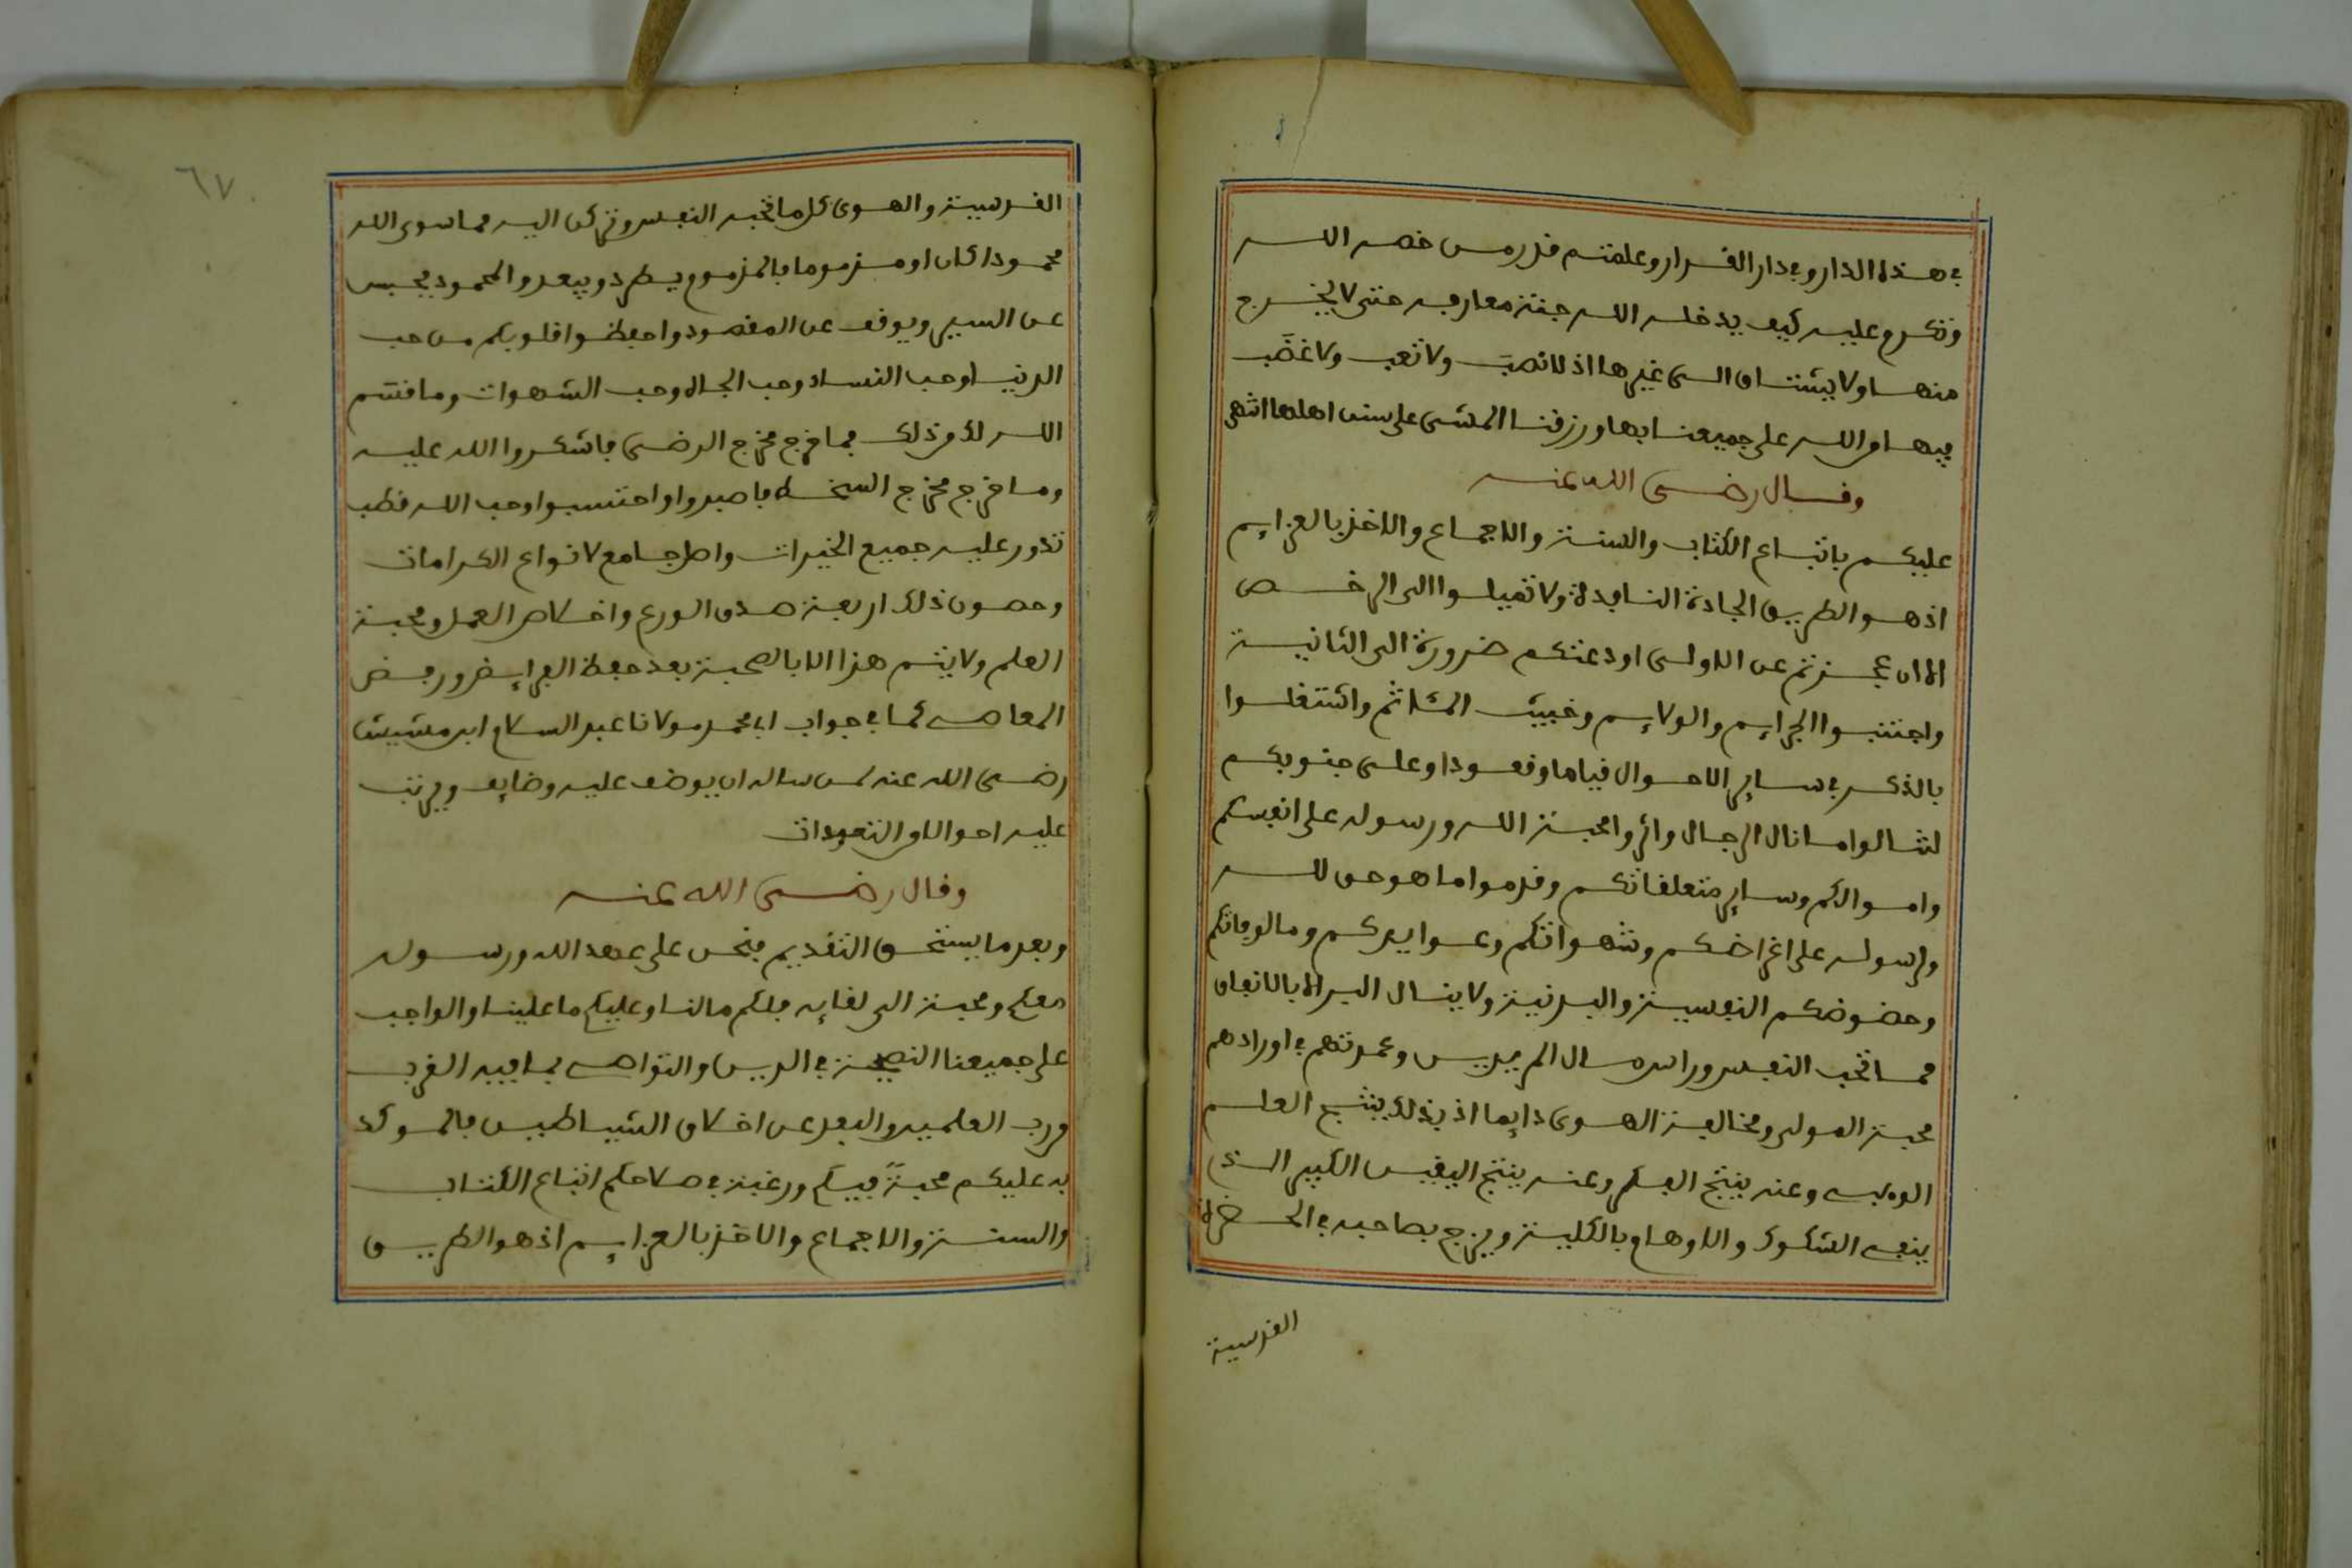 في هذه الدار وفي دار القرار وعلمتم قدر من خصه الله
وتكرم عليه كيف يدخله الله جنة معارفه حتى لا يخرج
منها ولا يشتاق الى غيرها اذ لا نصَب ولا تعب ولا غضَب
فيها من الله على جميعنا بها ورزقنا المشي على سنن اهلها انتهى
وقال رضي الله عنه
عليكم باتباع الكتاب والسنة والاجماع والاخذ بالعزايم
اذ هو الطريق الجادة النافذة ولا تميلوا الى الرخص
الا ان عجزتم عن الاولى او دعتكم ضرورة الى الثانية
واجتنبوا الجرايم والولايم وخبيث المئاثم واشتغلوا
بالذكر في ساير الاحوال قياما وقعودا وعلى جنوبكم
لتنالوا ما نال الرجال واثروا محبة الله ورسوله على انفسكم
واموالكم وساير متعلقاتكم وقدموا ما هو حق لله
ولرسوله على اغراضكم وشهواتكم وعوايدكم ومالوفاتكم
وحضوضكم النفسية والبدنية ولا ينال البر الا بالانفاق
مما تحب النفس وراس مال المريدين وعمدتهم في اورادهم
محبة المولى ومخالفة الهوى دايما اذ بذلك ينتج العلم
الوهبي وعنه ينتج الفكر وعنه ينتج اليقين الكبير الذي
ينفي الشكوك والاوهام بالكلية ويزج بصاحبه في الحضرة
القدسية
٦٧
القدسية والهوى كل ما تحبه النفس وتركن اليه مما سوى الله
محمودا كان او مذموما فالمذموم يطرد ويبعد والمحمود يحبس
عن السير ويوقف عن المقصود واحفظوا قلوبكم من حب
الدنيا وحب النساء وحب الجاه وحب الشهوات وما قسم
الله لكم من ذلك فما خرج مخرج الرضى فاشكروا الله عليه
وما خرج مخرج السخط فاصبروا واحتسبوا وحب الله قطب
تدور عليه جميع الخيرات واصل جامع لانواع الكرامات
وحصون ذلك اربعة صدق الورع واخلاص العمل ومحبة
العلم ولا يتم هذا الا بالصحبة بعد حفظ الفرايض ورفض
المعاصي كما في جواب ابي محمد مولانا عبد السلام ابن مشيش
رضي الله عنه لمن ساله ان يوضف عليه وضايف ويرتب
عليه احوالا من التعبدات
وقال رضي الله عنه
وبعد ما يستحق التقديم فنحن على عهد الله ورسوله
معكم ومحبة الى لقايه فلكم ما لنا وعليكم ما علينا والواجب
على جميعنا النصيحة في الدين والتواصي بما فيه القرب
من رب العلمين والبعد عن اخلاق الشياطين فالموكد
به عليكم محبةً فيكم ورغبة في صلاحكم اتباع الكتاب
والسنة والاجماع والاخذ بالعزايم اذ هو الطريق